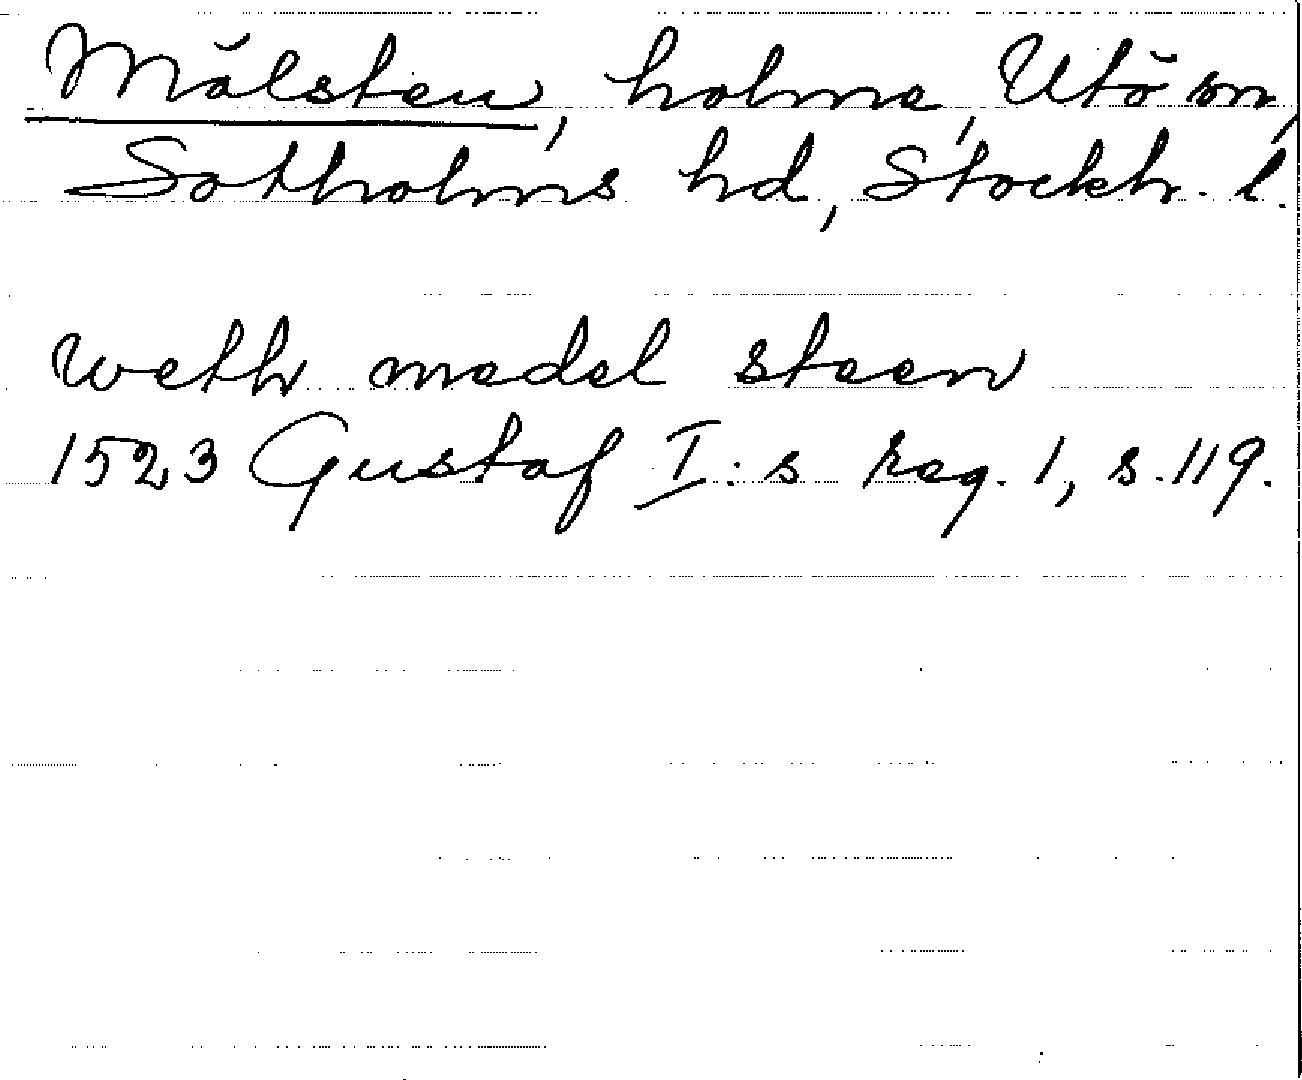 Mälsten, holme, Utö sn,
Sotholms hd, Stockh. l.
weth medel steen
1523 Gustaf I:s reg. 1, s. 119.